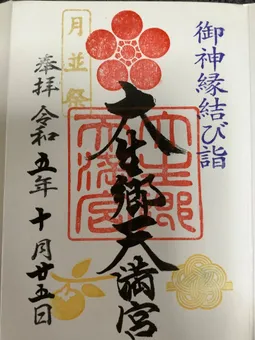 御神縁結び詣
月並祭
大生郷天満宮
大生郷
天満宮
奉拝 令和五年十月廿五日